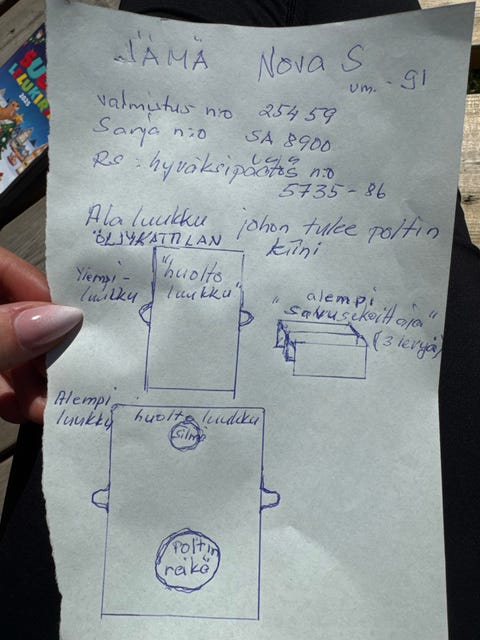 JÄMÄ Nova S
vm. - 91
valmistus n:o 25459
Sarja n:o SA 8900
Rs: hyväksi päätös n:o
5735-86
Ala luukku johon tulee poltin
ÖLJYKATTILAN kiini
Yiempi-
luukku
"huolto
luukku"
"alempi
savusekoittaja"
(3 levyä)
Alempi
luukku
huolto luukku
silmä
poltin
reikä